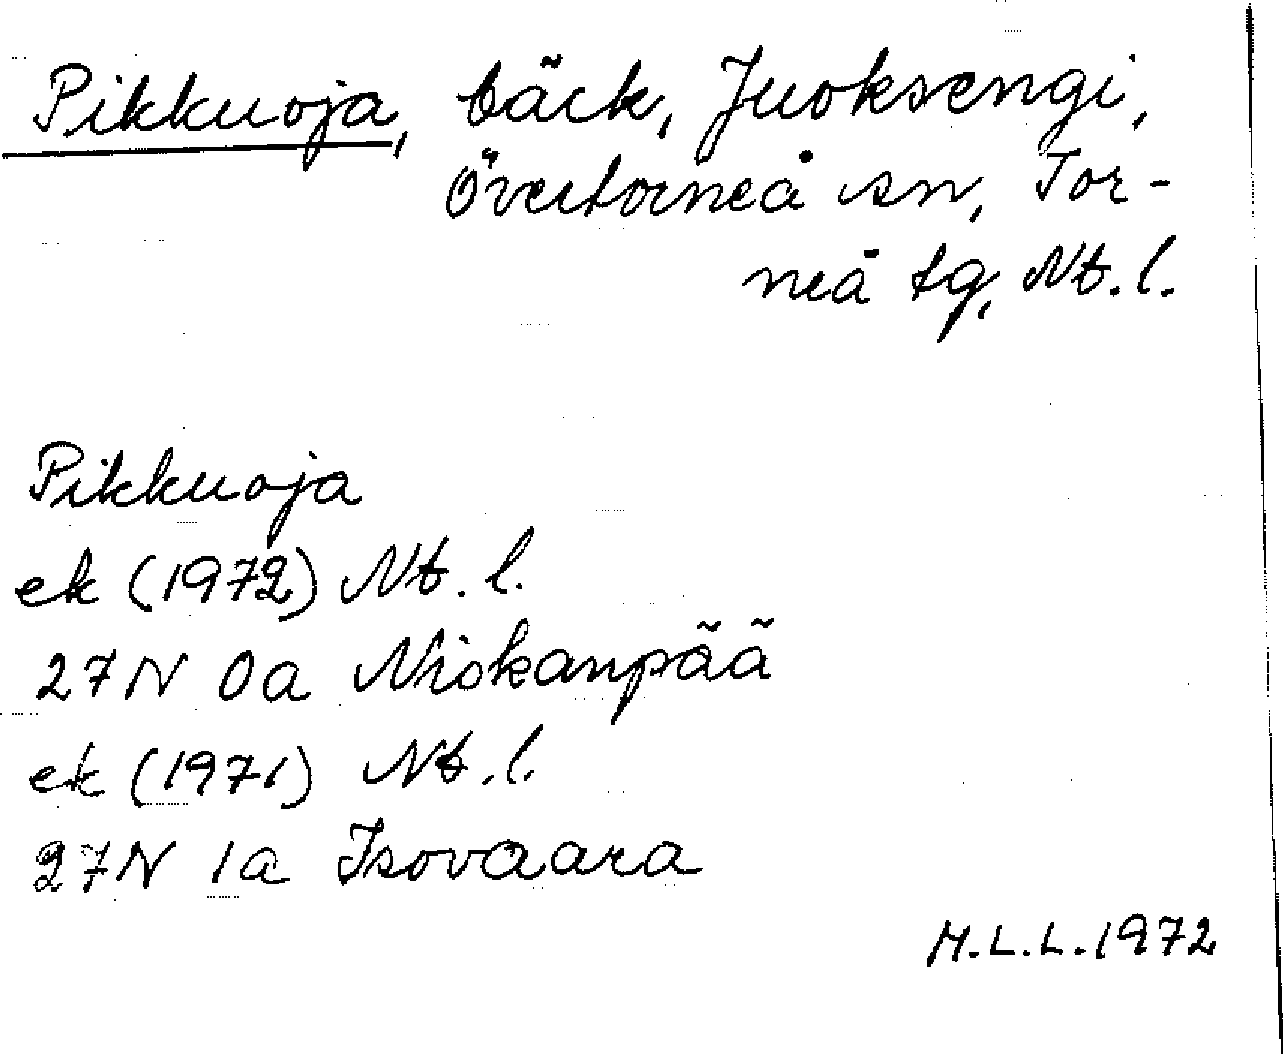 Pikkuoja, bäck, Juoksengi,
Övertorneå sn, Tor-
neå tg, Nb. l.
Pikkuoja
ek (1972) Nb. l.
27N 0a Niskanpää
ek (1971) Nb. l.
27N 1a Isovaara
M.L.L. 1972